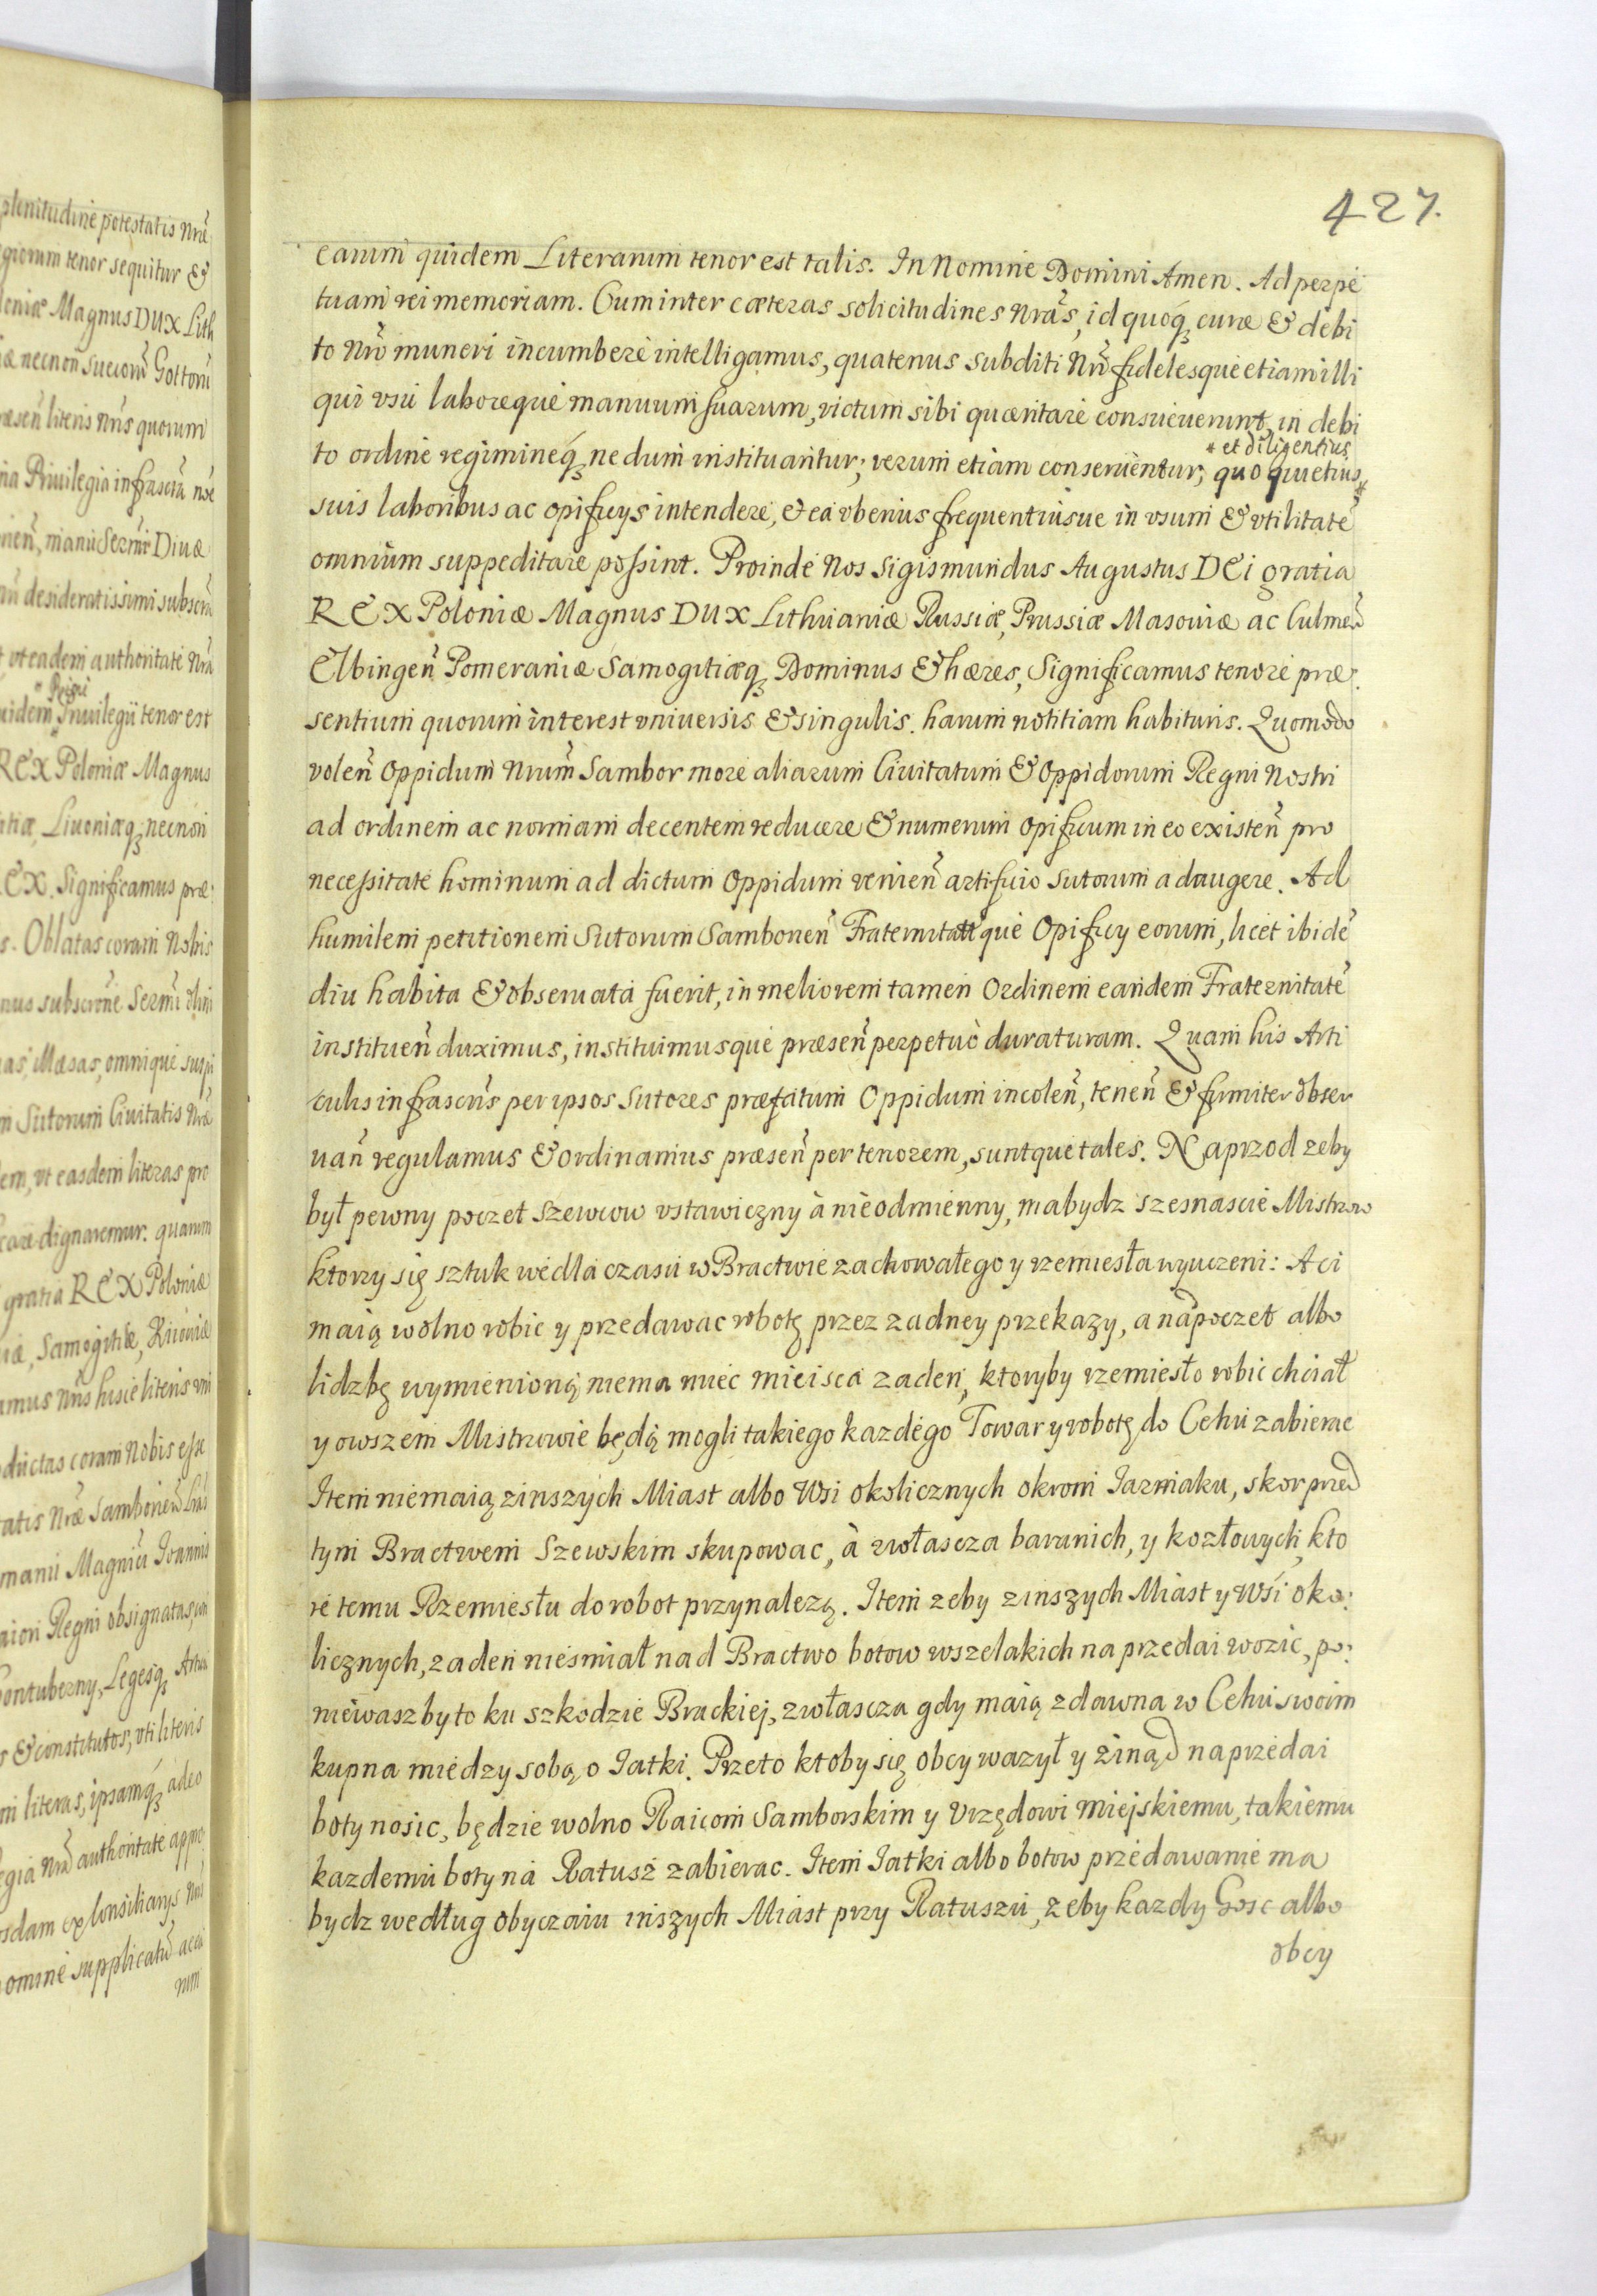 plenitudine potestatis Nrae
giorum tenor sequitur &
loniæ Magnus DUX Lith
æ necnon Suecorũ Gottorũ
ræsen̄ literis Nris quorum
ria Priuilegia infrascrũ
nen̄, manu Sermi Divæ
desideratissimi subscrũ
ut eadem authoritate Nrã
uidem Priuilegii tenor est
REX Poloniæ Magnus
Liuoniæq̃ necnon
EX. Significamus præ:
s. Oblatas coram Nobis
subscrone Sermi olim
as, illæsas, omnique susp
m Sutorum Ciuitatis Nræ
em, ut easdem literas pro
care dignaremur. quarum
gratia REX Poloniæ
iæ, Samogitiæ, Kiioviæ
amus Nris hisce literis vni
ductas coram Nobis esse
tatis Nræ Samborien̄ Lras
manu Magnici Joannis
aiori Regni obsignatas,
Contuberny, Legesq̃
s & constitutos, uti literis
m literas, ipsamq̃ adeo
egia Nrã authoritate appro
osdam ex Consiliarys Nris
omine supplicatũ
427.
earum quidem Literarum tenor est talis. In Nomine Domini Amen. Ad perpe
tuam rei memoriam. Cum inter cæteras solicitudines Nrãs, id quoq̃, curæ & debi
to Nrõ muneri incumbere intelligamus, quatenus subditi Nrĩ fidelesque etiam illi
qui vsu laboreque manuum suarum, victum sibi quæritare consueuerunt, in debi
to ordine regimineq̃, nedum instituantur; verum etiam conseruentur; quo quietius *
* et diligentius
suis laboribus ac opificys intendere, & ea vberius frequentiusue in vsum & vtilitatẽ
omnium suppeditare possint. Proinde Nos Sigismundus Augustus DEi gratia
REX Poloniæ Magnus DUX Lithuaniæ Russiæ, Prussiæ Masoviæ ac Culmen̄
Elbingen̄ Pomeraniæ Samogitiæq̃ Dominus & hæres, Significamus tenore præ:
sentium quorum interest vniuersis & singulis. harum notitiam habituris. Quomodo
volen̄ Oppidum Nrum̃ Sambor more aliarum Ciuitatum & Oppidorum Regni Nostri
ad ordinem ac normam decentem reducere & numerum opificum in eo existen̄ pro
necessitate hominum ad dictum Oppidum venien̄ artificio Sutorum adaugere. Ad
humilem petitionem Sutorum Samborien̄ Fraternitatique Opificy eorum, licet ibidẽ
diu habita & obseruata fuerit, in meliorem tamen Ordinem eandem Fraternitatẽ
instituen̄ duximus, instituimusque præsen̄ perpetuò duraturam. Quam his Arti
culis infrascris̃ per ipsos Sutores præfatum Oppidum incolen̄, tenen̄ & firmiter obser
uan̄ regulamus & Ordinamus præsen̄ per tenorem, suntque tales. Naprzod zeby
był pewny poczet Szewcow vstawiczny à nieodmienny, ma bydz szesnascie Mistrzow
ktorzy się sztuk wedla czasu w Bractwie zachowałego y rzemiesła wyuczeni: A ci
maią wolno robic y przedawac robotę przez zadney przekazy, a nad poczet albo
lidzbę wymienioną niema miec mieisca zaden, ktoryby rzemiesło robic chciał
y owszem Mistrzowie będą mogli takiego kazdego Towar y robotę do Cehu zabierac
Item niemaią zinszych Miast albo Wsi okolicznych okrom Jarmaku, skor przed
tym Bractwem Szewskim skupowac, à zwłascza baranich, y kozłowych, kto
re temu Rzemiesłu do robot przynalezą. Item zeby zinszych Miast y Wsi oko:
licznych, zaden niesmiał nad Bractwo botow wszelakich na przedai wozic, po:
niewasz by to ku szkodzie Brackiej, zwłascza gdy maią zdawna w Cehu swoim
kupna miedzy sobą o Jatki. Przeto ktoby się obcy wazył y zinąd na przedai
boty nosic, będzie wolno Raicom Samborskim y Vrzędowi Miejskiemu, takiemu
kazdemu boty na Ratusz zabierac. Item Jatki albo botow przedawanie ma
bydz według obyczaiu inszych Miast przy Ratuszu, zeby kazdy Gosc albo
obcy